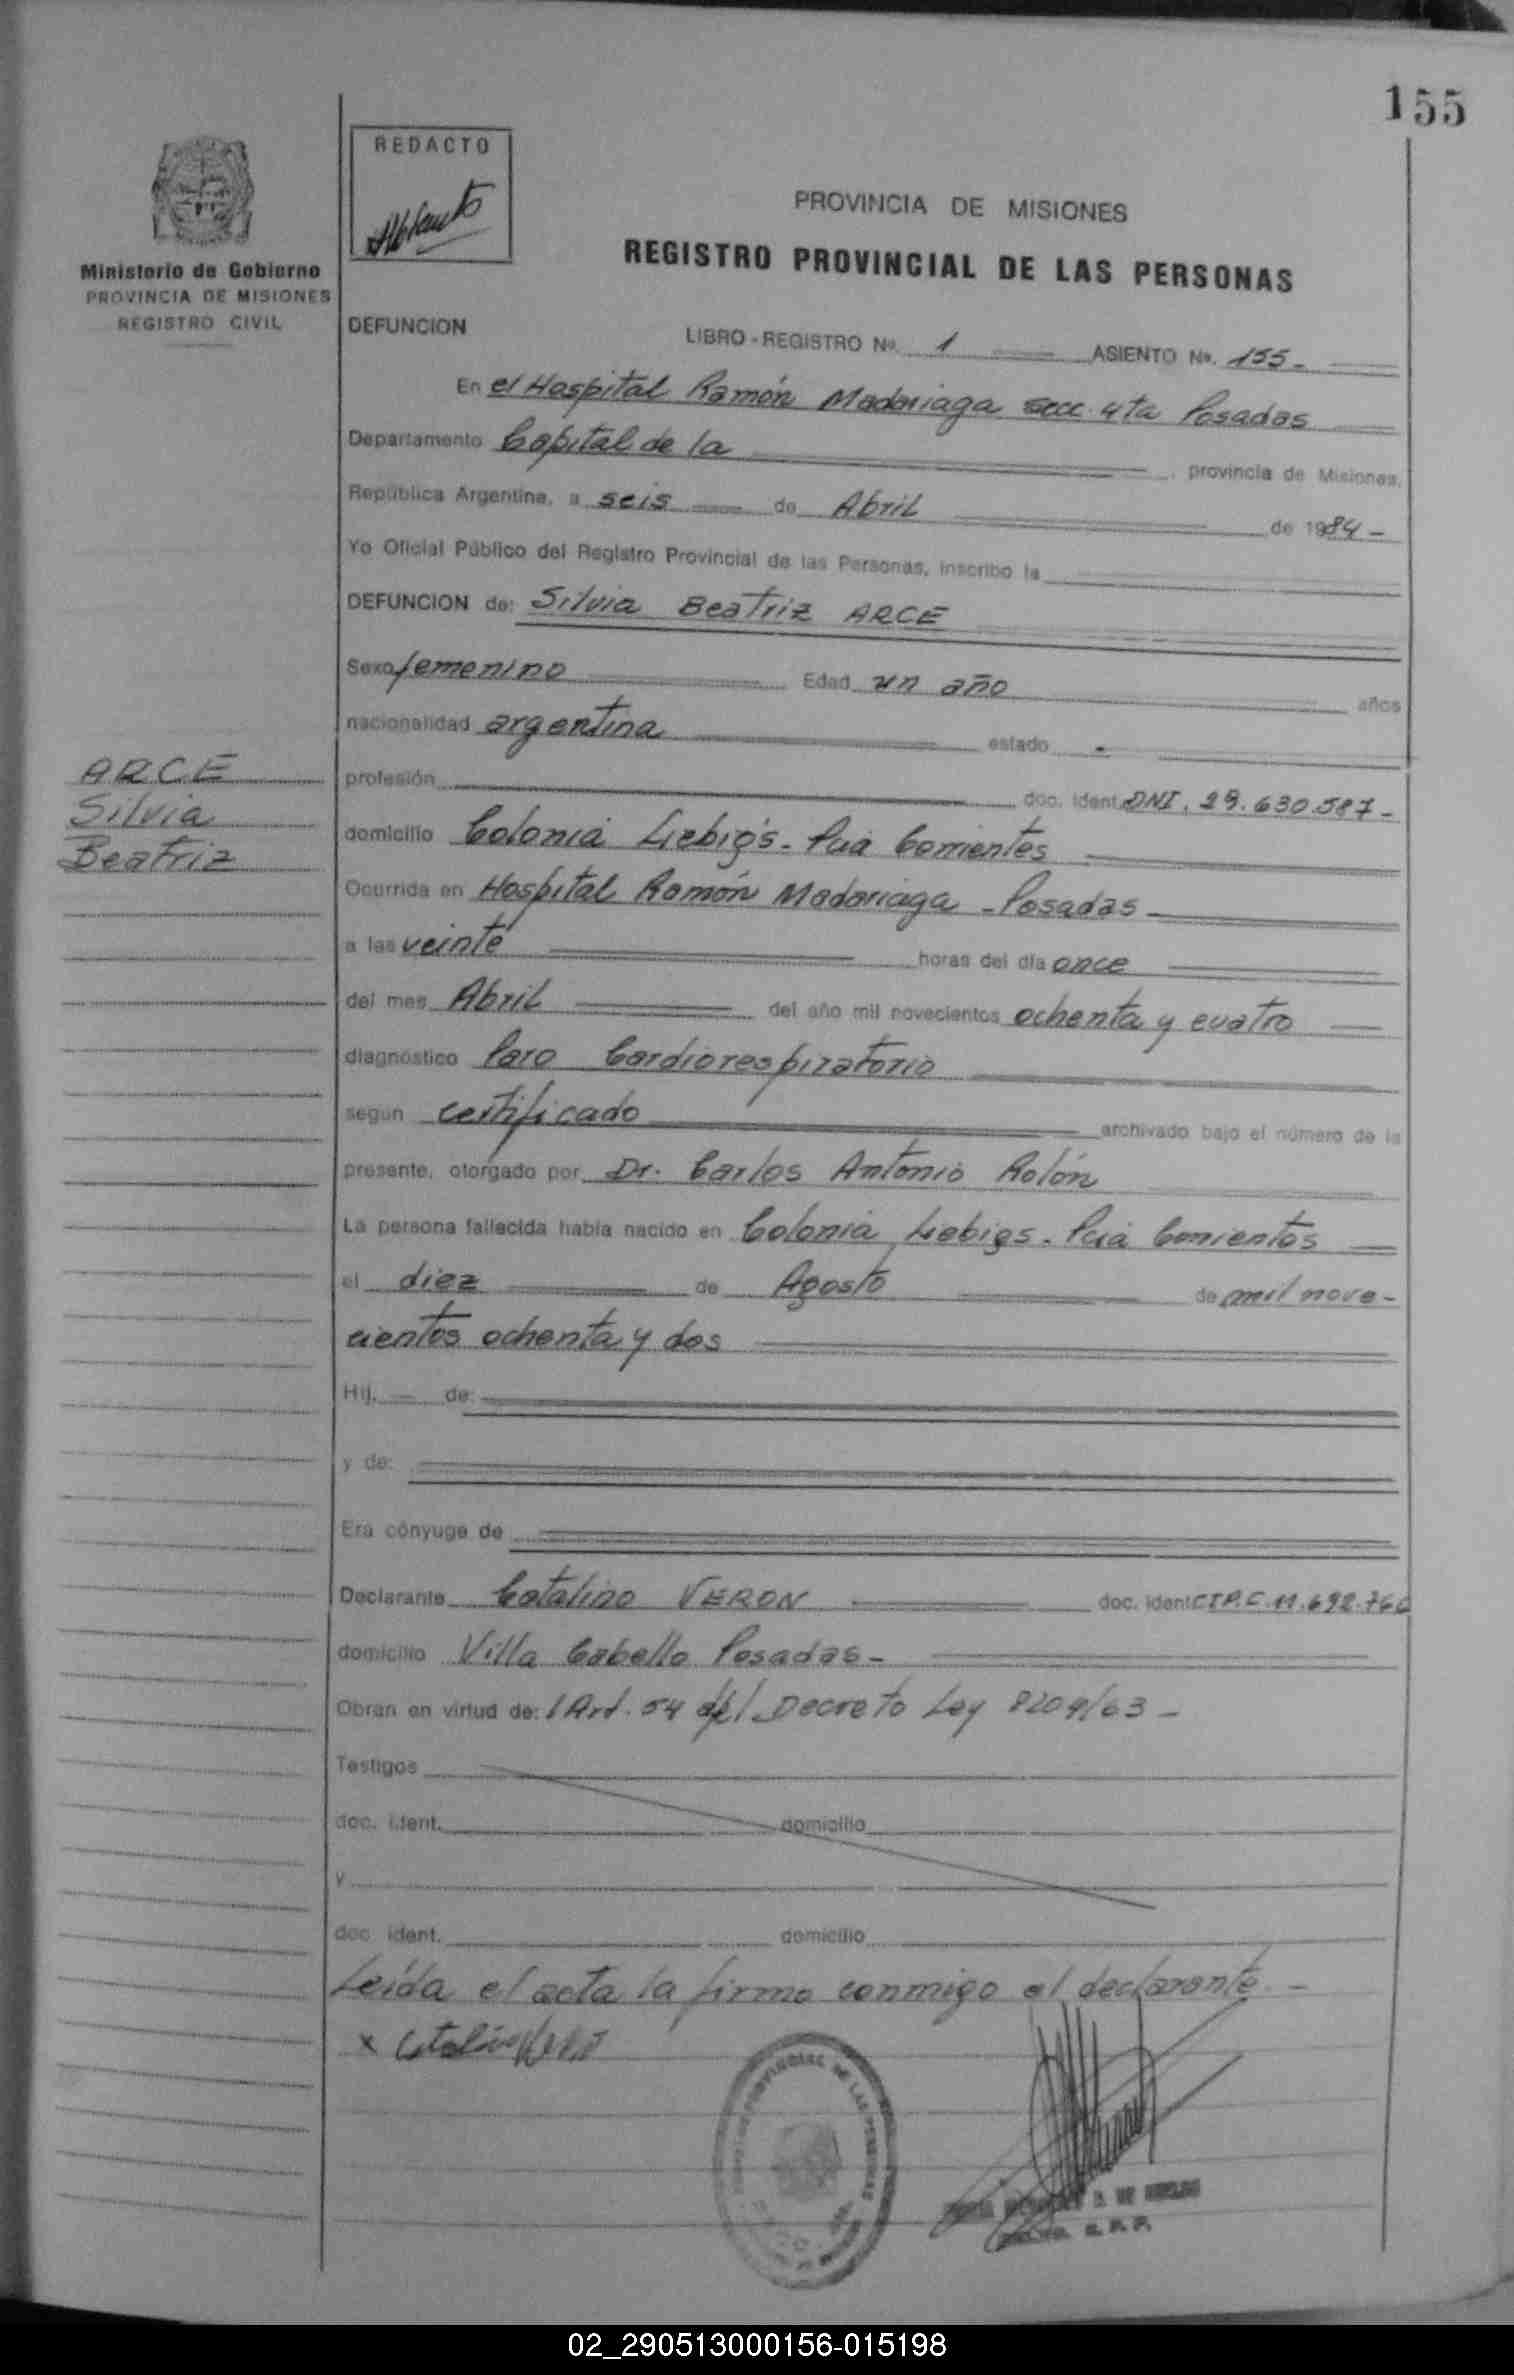 155
REDACTO
Ministerio de Gobierno
PROVINCIA DE MISIONES
REGISTRO CIVIL
PROVINCIA DE MISIONES
REGISTRO PROVINCIAL DE LAS PERSONAS
DEFUNCION LIBRO - REGISTRO Nº. 1 ASIENTO Nº. 155-
En el Hospital Ramón Madariaga secc. 4ta Posadas
Departamento Capital de la provincia de Misiones,
República Argentina, a seis de Abril de 1984-
Yo Oficial Público del Registro Provincial de las Personas, inscribo la
DEFUNCION de: Silvia Beatriz ARCE
Sexo femenino Edad un año años
nacionalidad argentina estado -
ARCE
Silvia
Beatriz
profesión doc. ident. DNI. 29.630.587-
domicilio Colonia Liebig's - Pcia Corrientes
Ocurrida en Hospital Ramón Madariaga - Posadas -
a las veinte horas del día once
del mes Abril del año mil novecientos ochenta y cuatro
diagnóstico Paro Cardiorespiratorio
según certificado archivado bajo el número de la
presente, otorgado por Dr. Carlos Antonio Rolón
La persona fallecida había nacido en Colonia Liebigs - Pcia Corrientes
el diez de Agosto de mil nove-
cientos ochenta y dos
Hij. - de:
y de:
Era cónyuge de
Declarante Catalino VERON doc. ident. C.I.P.C. 11.692.766
domicilio Villa Cabello Posadas -
Obran en virtud de: l Art. 54 del Decreto Ley 8204/63 -
Testigos
doc. ident. domicilio
y
doc. ident. domicilio
Leída el acta la firma conmigo el declarante. -
x
PROVINCIAL DE LAS PERSONAS
02_290513000156-015198